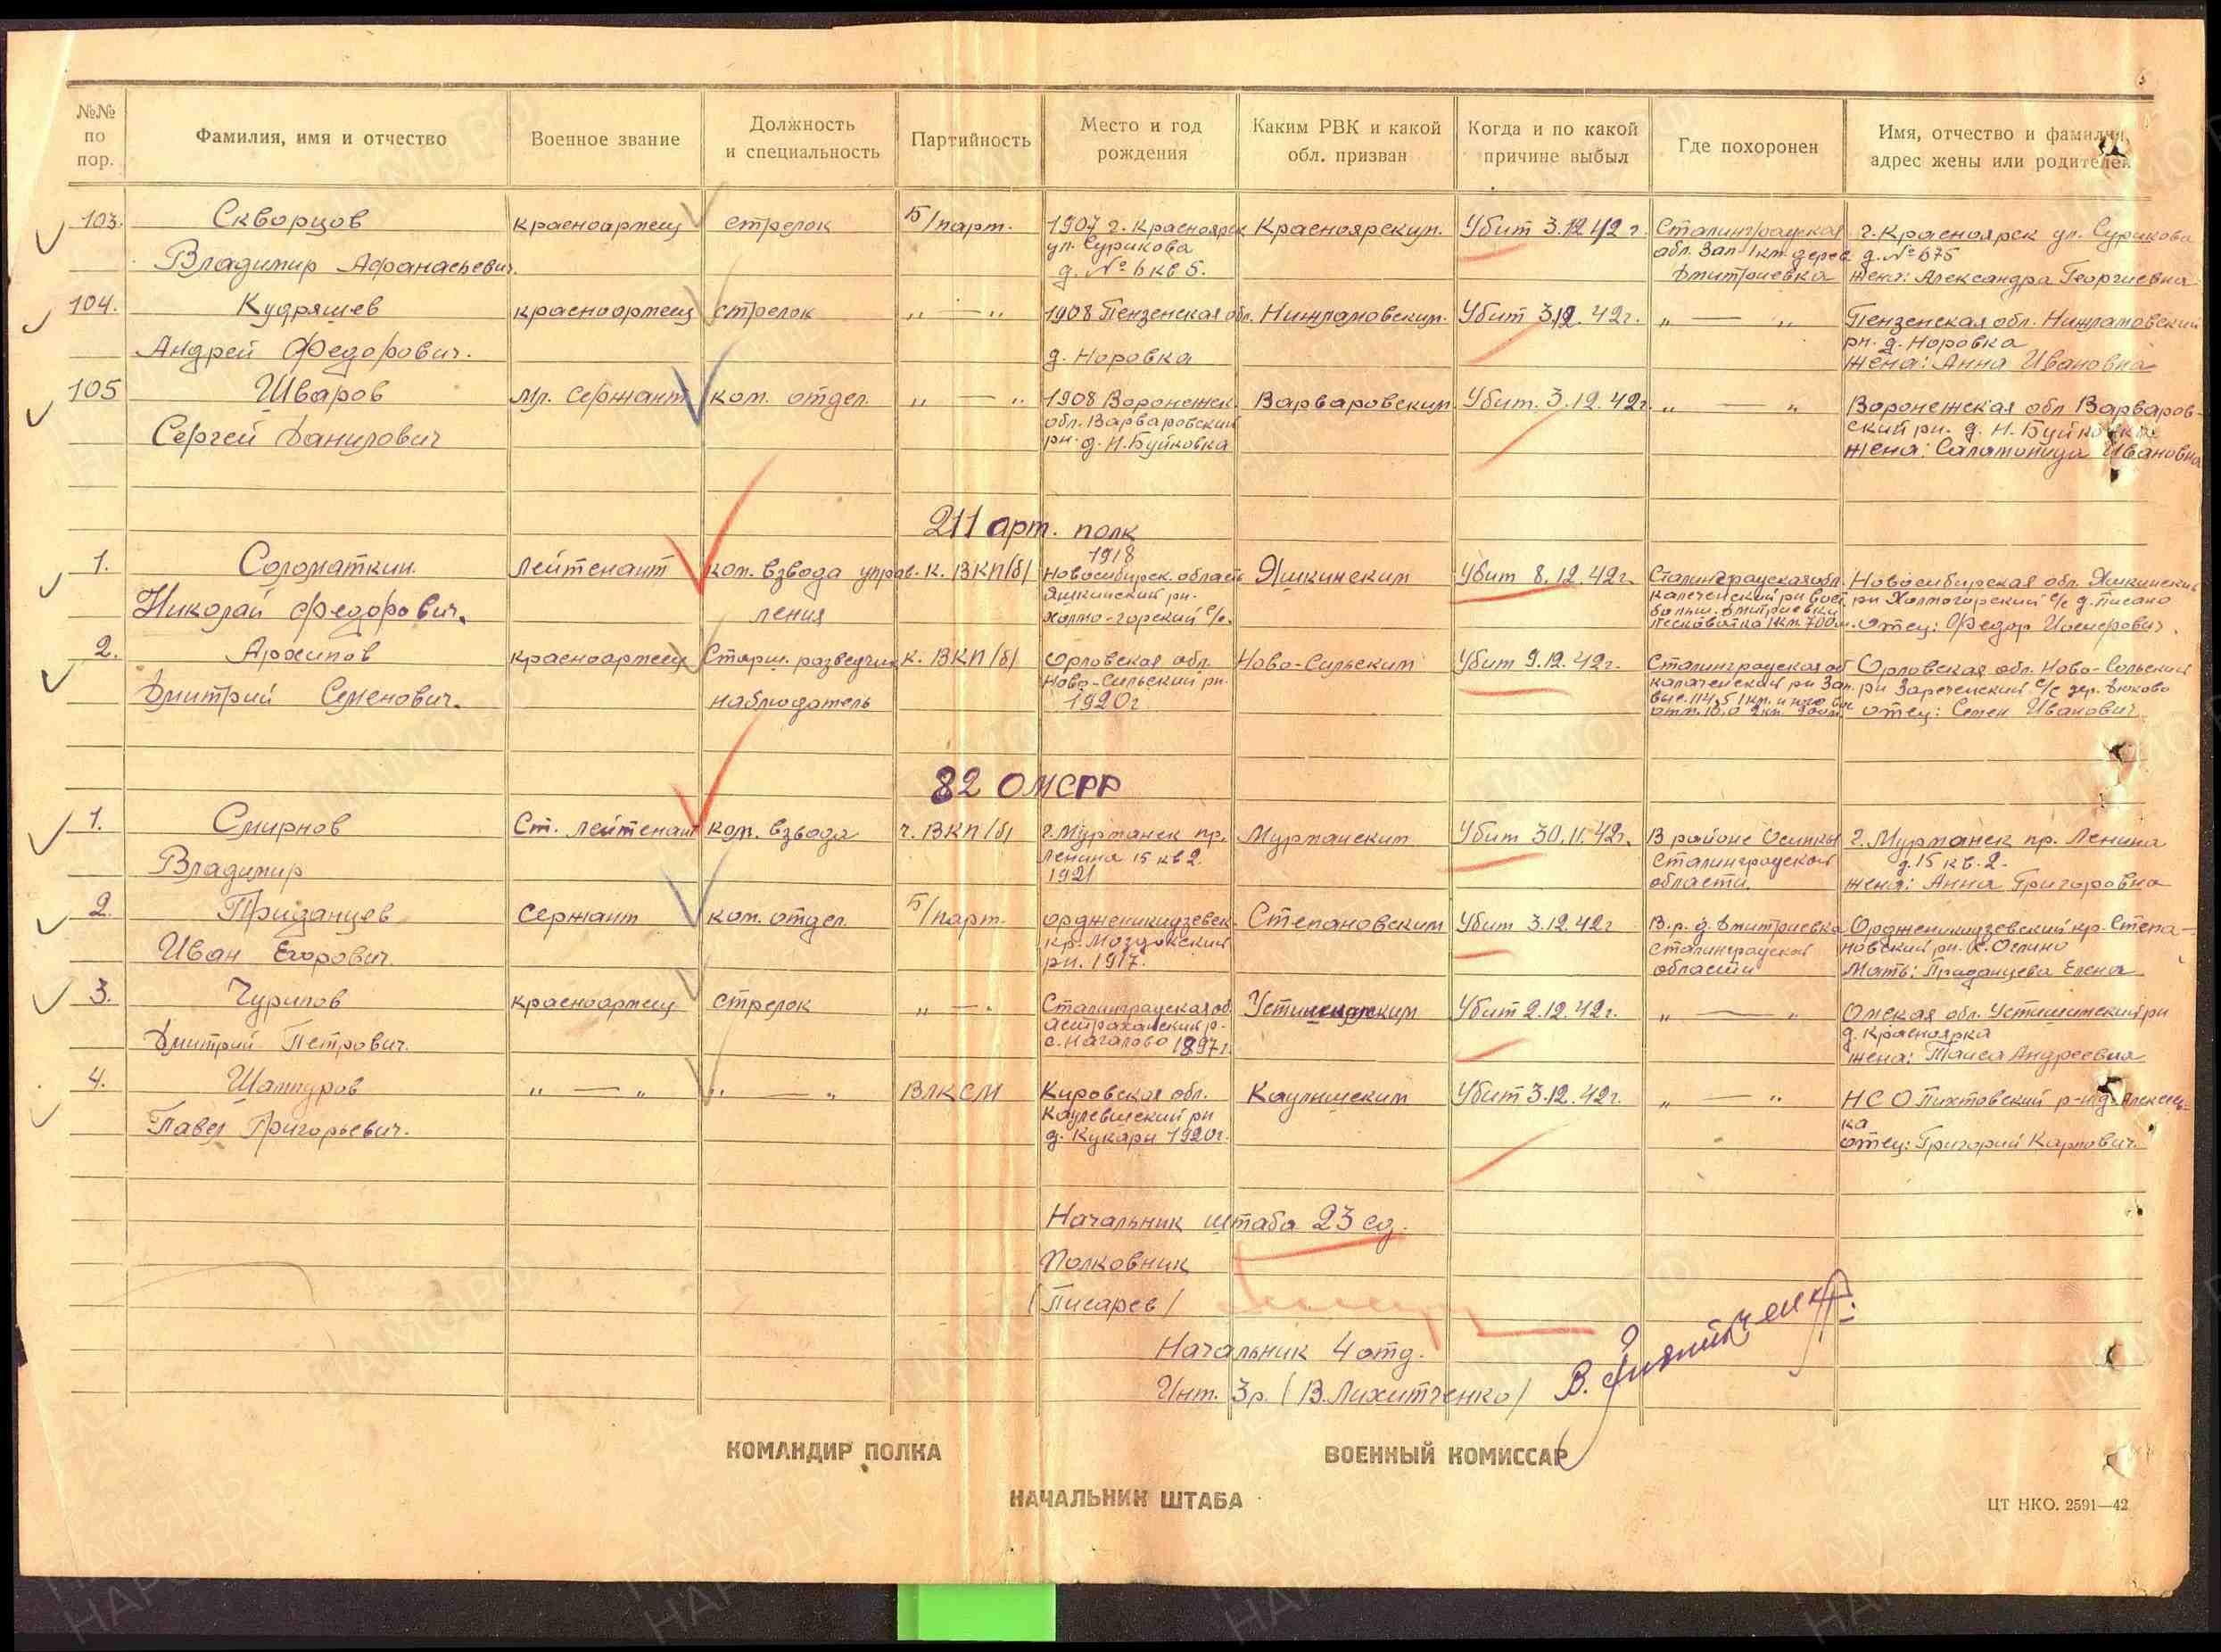 №№ по пор.
Фамилия, имя и отчество
Военное звание
Должность и специальность
Партийность
Место и год рождения
Каким РВК и какой обл. призван
Когда и по какой причине выбыл
Где похоронен
Имя, отчество и фамилия, адрес жены или родителей
103. Скворцов красноармеец стрелок Б/парт. 1907 г. Красноярск Красноярским. Убит 3.12.42 г. Сталинградская г. Красноярск ул. Сурикова
ул. Сурикова обл. Зап 1 км. дерев. д. № 675
Владимир Афанасьевич. д. № 6 кв 5. Дмитриевка жена: Александра Георгиевна
104. Кудряшев красноармеец стрелок „ — „ 1908 Пензенская обл. Убит 3.12.42г. „ — „ Пензенская обл.
рн. д. Норовка
Андрей Федорович. д. Норовка жена: Анна Ивановна
105 Шваров мл. сержант ком. отдел. „ — „ 1908 Воронежск. Варваровским Убит. 3.12.42г. „ — „ Воронежская обл Варваров-
обл. Варваровский ский рн. д. Н. Буйковка
Сергей Данилович рн. д. Н. Буйковка жена: Ивановна
211 арт. полк
1918
1. Соломаткин лейтенант ком. взвода управ- к. ВКП/б/ Новосибирск. область Яшкинским Убит 8.12.42г. Сталинградская обл. Новосибирская обл. Яшкинский
Яшкинский рн. рн Холмогорский с/с д. Писано
Николай Федорович. ления Холмо-горский с/с. отец: Федор
2. Архипов красноармеец Старш. разведчик к. ВКП/б/ Орловская обл. Ново-Сильским Убит 9.12.42г. Сталинградская об Орловская обл. Ново-Сильский
Ново-Сильский рн. рн Зареченский с/с дер.
Дмитрий Семенович. наблюдатель 1920г. отец: Семен Иванович
82 ОМСРР
1. Смирнов Ст. лейтенант ком. взвода ч. ВКП/б/ г. Мурманск пр. Мурманским Убит 30.11.42г. В районе Осинки г. Мурманск пр. Ленина
Ленина 15 кв 2. Сталинградской д. 15 кв. 2.
Владимир 1921 области. жена: Анна Григоровна
2. Приданцев Сержант ком. отдел. Б/парт. орджоникидзевск. Степановским Убит 3.12.42г В.р.д. Дмитриевка Орджоникидзевский кр. Степа-
кр. Моздокский Сталинградской новский рн.
Иван Егорович. рн. 1917. области Мать: Приданцева Елена
3. Чурилов красноармеец стрелок „ — „ Сталинградская об. Убит 2.12.42г. „ — „ Омская обл. рн
Астраханский р. д. Красноярка
Дмитрий Петрович. с. Началово 1897г. жена: Таиса Андреевна
4. Шампуров „ — „ „ — „ ВЛКСМ Кировская обл. Убит 3.12.42г. „ — „ НСО Пихтовский р-н д.
рн ка
Павел Григорьевич. д. Кукари 1920г. отец: Григорий Карпович.
Начальник штаба 23 сд.
Полковник
/Писарев/
Начальник 4 отд.
Инт. 3 р. /В. Лихитченко/
КОМАНДИР ПОЛКА
ВОЕННЫЙ КОМИССАР
НАЧАЛЬНИК ШТАБА
ЦТ НКО. 2591—42
ПАМЯТЬ НАРОДА